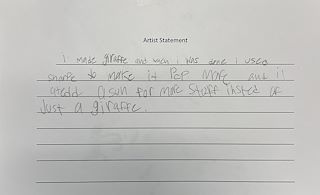 Artist Statement
I made giraffe and when i was done i used
sharpe to make it PoP More and i
atedd a sun for more Stuff insted of
Just a giraffe.